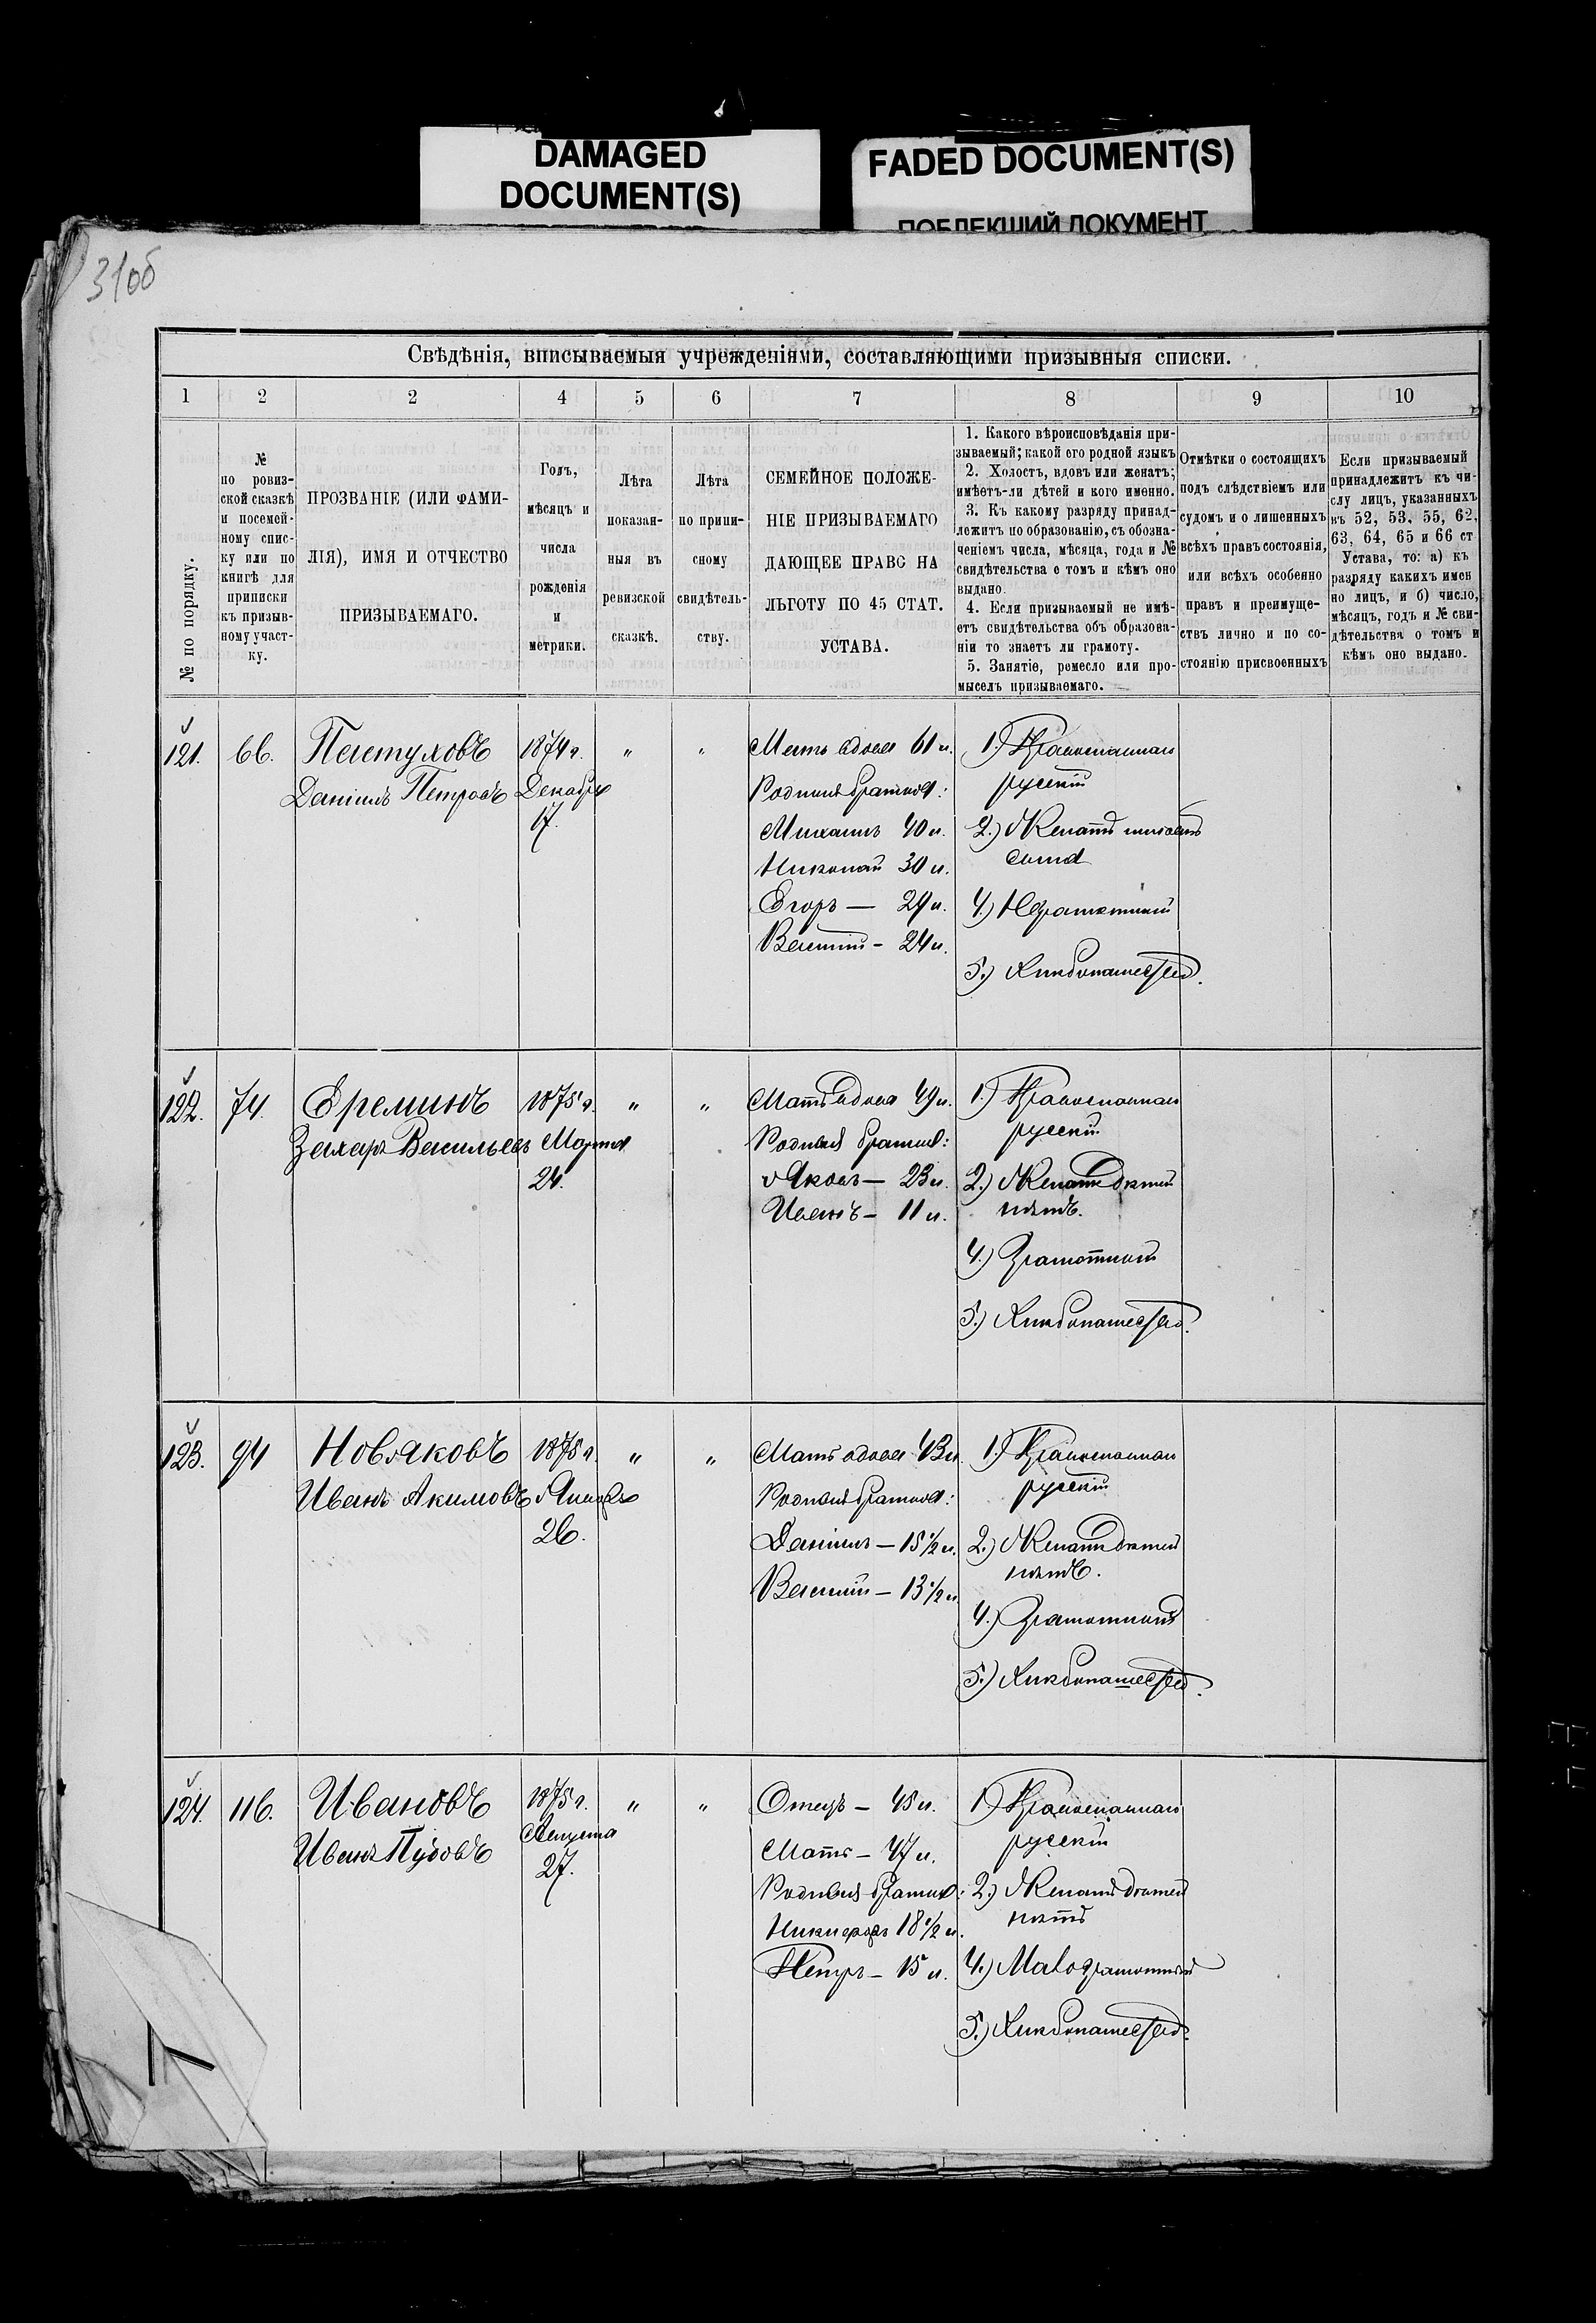 DAMAGED
DOCUMENT(S)
FADED DOCUMENT(S)
ПОБЛЕКШИЙ ДОКУМЕНТ
31об
Свѣдѣнія, вписываемыя учрежденіями, составляющими призывныя списки.
1 2 2 4 5 6 7 8 9 10
№ по порядку.
№
по ревиз-
ской сказкѣ
и посемей-
ному спис-
ку или по
книгѣ для
приписки
къ призыв-
ному участ-
ку.
ПРОЗВАНІЕ (ИЛИ ФАМИ-
ЛІЯ), ИМЯ И ОТЧЕСТВО
ПРИЗЫВАЕМАГО.
Годъ,
мѣсяцъ и
числа
рожденія
и
метрики.
Лѣта
показан-
ныя въ
ревизской
сказкѣ.
Лѣта
по припи-
сному
свидѣтель-
ству.
СЕМЕЙНОЕ ПОЛОЖЕ-
НІЕ ПРИЗЫВАЕМАГО
ДАЮЩЕЕ ПРАВО НА
ЛЬГОТУ ПО 45 СТАТ.
УСТАВА.
1. Какого вѣроисповѣданія при-
зываемый; какой его родной языкъ
2. Холостъ, вдовъ или женатъ;
имѣетъ-ли дѣтей и кого именно.
3. Къ какому разряду принад-
лежитъ по образованію, съ обозна-
ченіемъ числа, мѣсяца, года и №
свидѣтельства о томъ и кѣмъ оно
выдано.
4. Если призываемый не имѣ-
етъ свидѣтельства объ образова-
ніи то знаетъ ли грамоту.
5. Занятіе, ремесло или про-
мыселъ призываемаго.
Отмѣтки о состоящихъ
подъ слѣдствіемъ или
судомъ и о лишенныхъ
всѣхъ правъ состоянія,
или всѣхъ особенно
правъ и преимуще-
ствъ лично и по со-
стоянію присвоенныхъ
Если призываемый
принадлежитъ къ чи-
слу лицъ, указанныхъ
въ 52, 53, 55, 62,
63, 64, 65 и 66 ст
Устава, то: а) къ
разряду какихъ имен
но лицъ, и б) число,
мѣсяцъ, годъ и № сви-
дѣтельства о томъ и
кѣмъ оно выдано.
121. 66. Пастуховъ
Даніилъ Петровъ
1874 г.
Декабря
17.
" "
Мать вдова 61 л.
Родные братья:
Михаилъ 40 л.
Николай 30 л.
Егоръ — 29 л.
Василій - 24 л.
1.) Православнаго
русскій
2.) Женатъ имѣетъ
сына
4.) Неграмотный
5.) Хлѣбопашество.
122. 74. Ереминъ
Захаръ Васильевъ
1875 г.
Марта
24.
" "
Мать вдова 49 л.
Родные братья:
Яковъ — 23 л.
Иванъ — 11 л.
1.) Православнаго
русскій
2.) Женатъ дѣтей
нѣтъ.
4.) Грамотный
5.) Хлѣбопашество.
123. 94 Новяковъ
Иванъ Акимовъ
1875 г.
Января
26.
" "
Мать вдова 43 л.
Родные братья:
Даніилъ — 15 1/2 л.
Василій — 13 1/2 л.
1.) Православнаго
русскій
2.) Женатъ дѣтей
нѣтъ.
4.) Грамотный
5.) Хлѣбопашество.
124. 116. Ивановъ
Иванъ Пудовъ
1875 г.
Августа
27.
" "
Отецъ — 45 л.
Мать — 47 л.
Родные братья:
Никифоръ 18 1/2 л.
Петръ — 15 л.
1.) Православнаго
русскій
2.) Женатъ дѣтей
нѣтъ
4.) Малограмотный
5.) Хлѣбопашество.